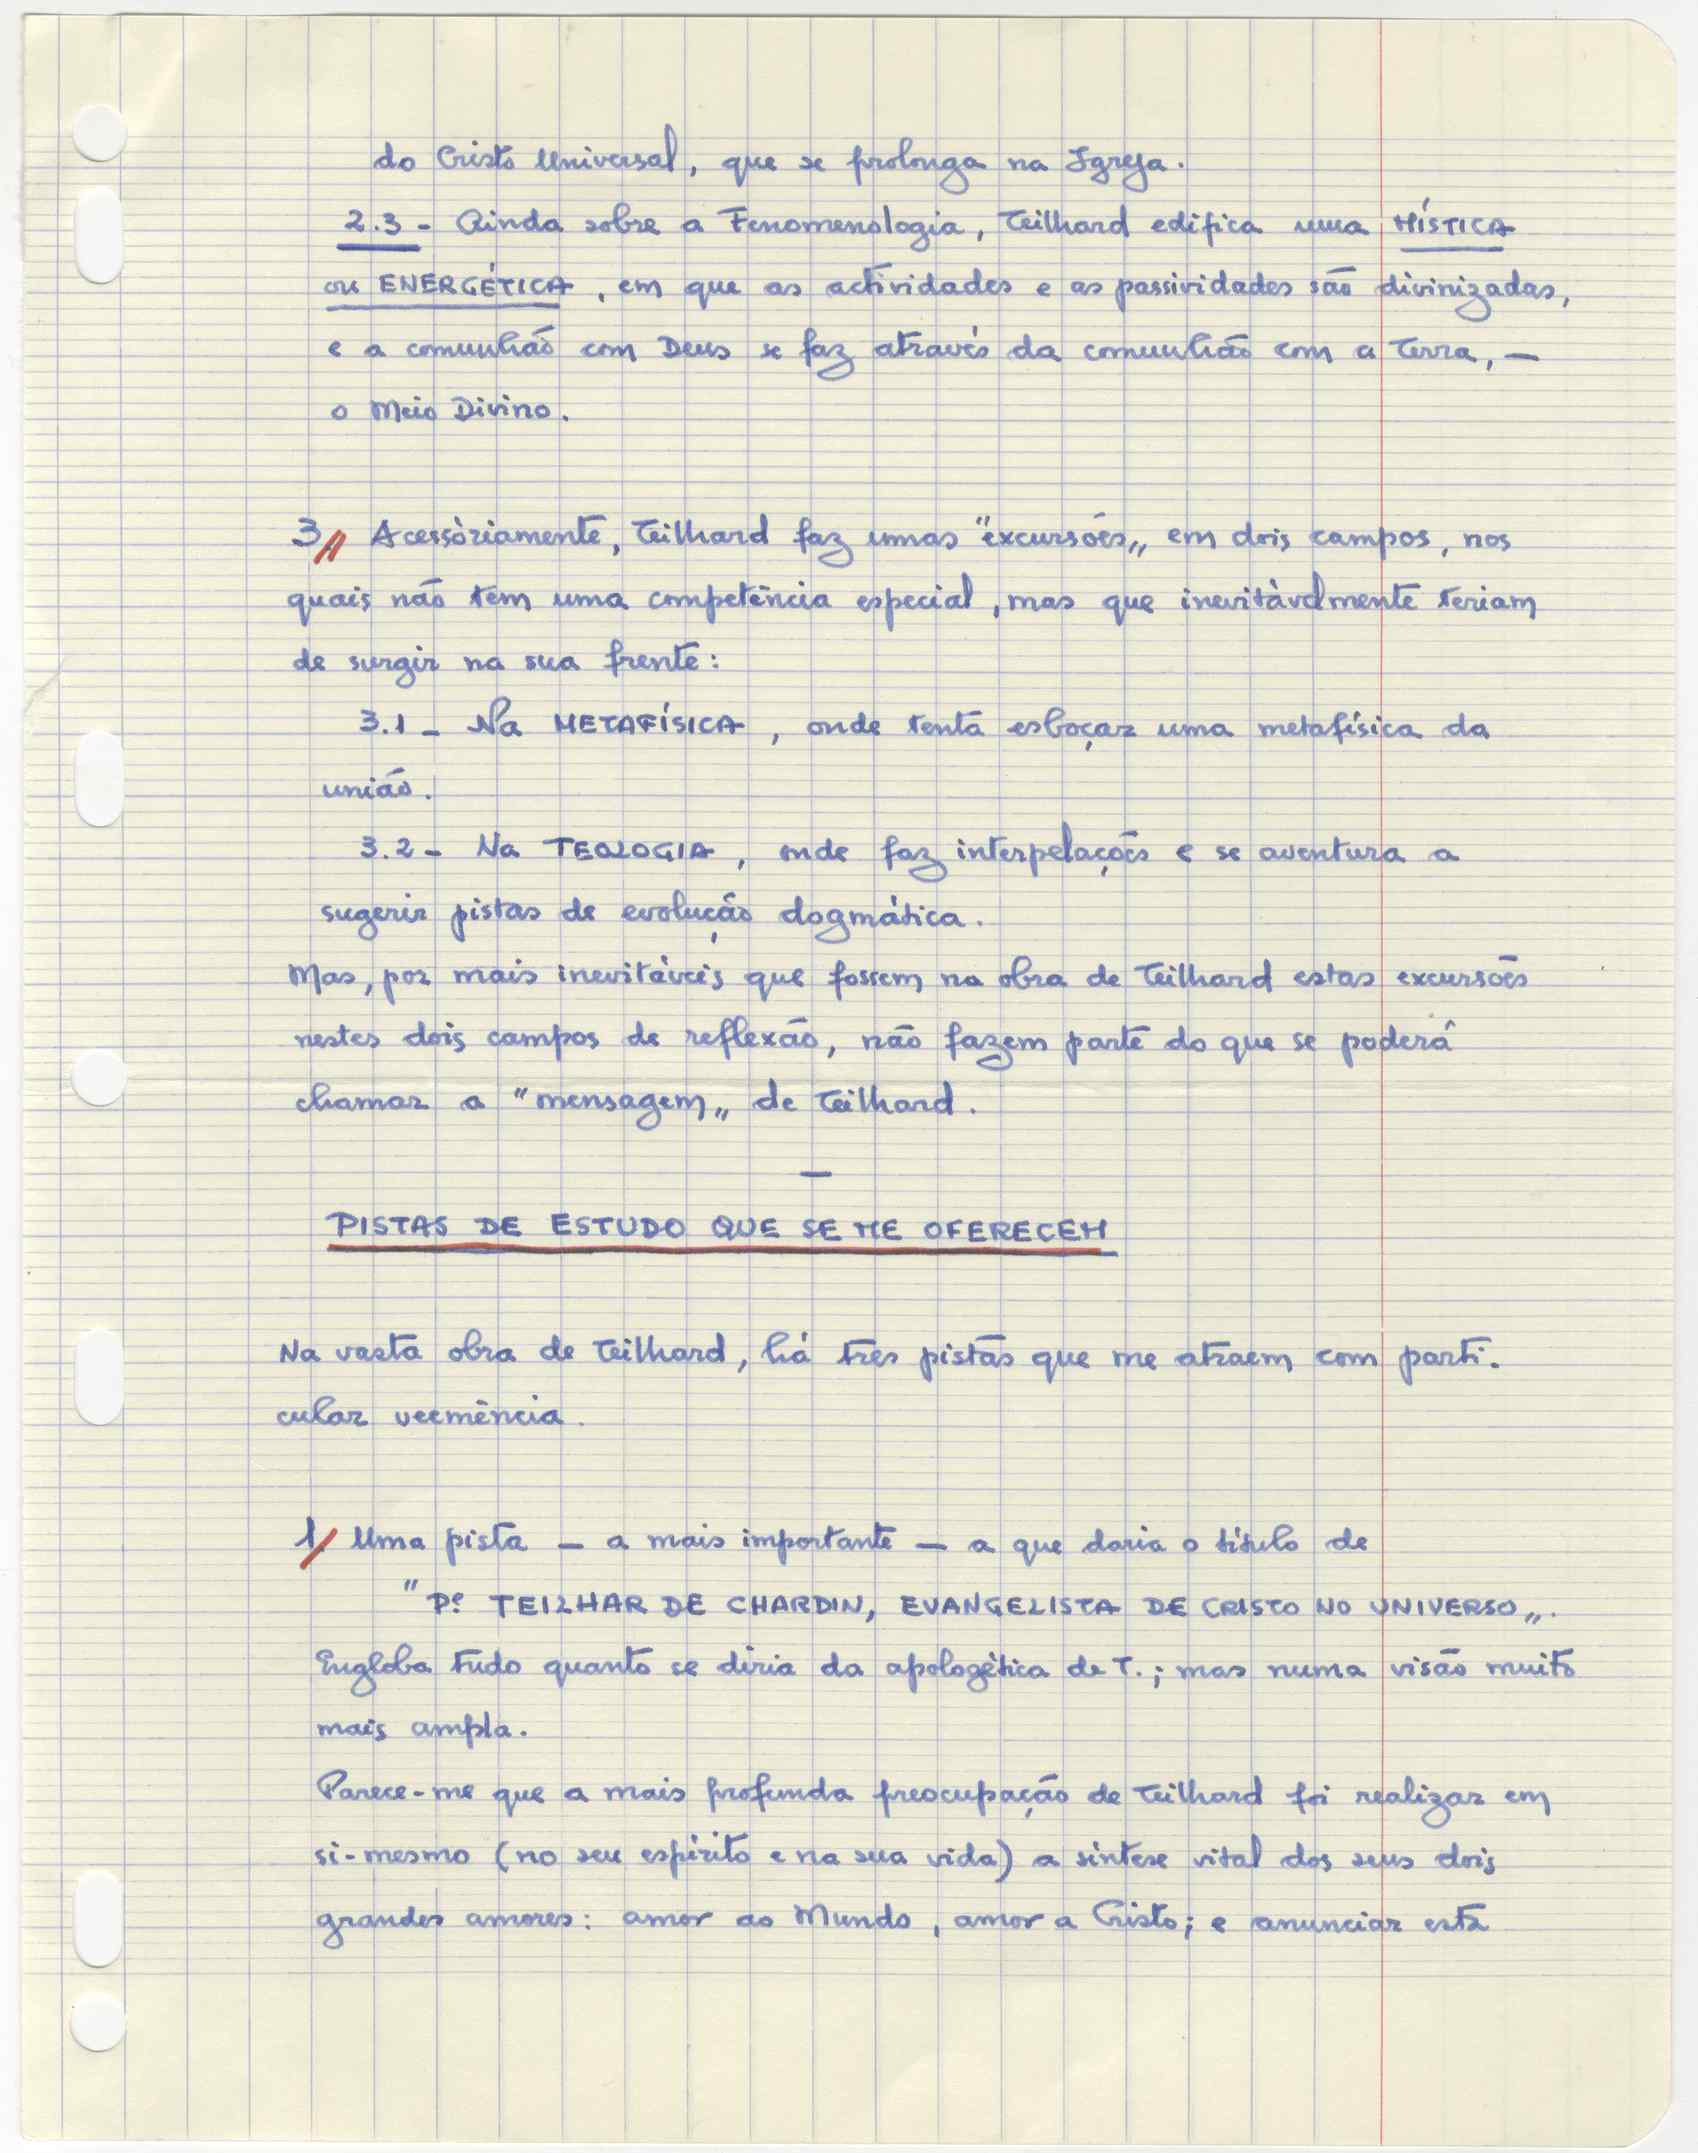 do Cristo Universal, que se prolonga na Igreja.
2.3 - Ainda sobre a Fenomenologia, Teilhard edifica uma MÍSTICA
ou ENERGÉTICA, em que as actividades e as passividades são divinizadas,
e a comunhão com Deus se faz através da comunhão com a Terra, —
o Meio Divino.
3/ Acessòriamente, Teilhard faz umas "excursões„ em dois campos, nos
quais não tem uma competência especial, mas que inevitàvelmente teriam
de surgir na sua frente:
3.1 - Na METAFÍSICA, onde tenta esboçar uma metafísica da
união.
3.2 - Na TEOLOGIA, onde faz interpelações e se aventura a
sugerir pistas de evolução dogmática.
Mas, por mais inevitáveis que fossem na obra de Teilhard estas excursões
nestes dois campos de reflexão, não fazem parte do que se poderá
chamar a "mensagem„ de Teilhard.
—
PISTAS DE ESTUDO QUE SE ME OFERECEM
Na vasta obra de Teilhard, há três pistas que me atraem com parti-
cular veemência.
1/ Uma pista — a mais importante — a que daria o título de
"Pe. TEILHAR DE CHARDIN, EVANGELISTA DE CRISTO NO UNIVERSO„.
Engloba tudo quanto se diria da apologética de T.; mas numa visão muito
mais ampla.
Parece-me que a mais profunda preocupação de Teilhard foi realizar em
si-mesmo (no seu espírito e na sua vida) a síntese vital dos seus dois
grandes amores: amor ao Mundo, amor a Cristo; e anunciar esta